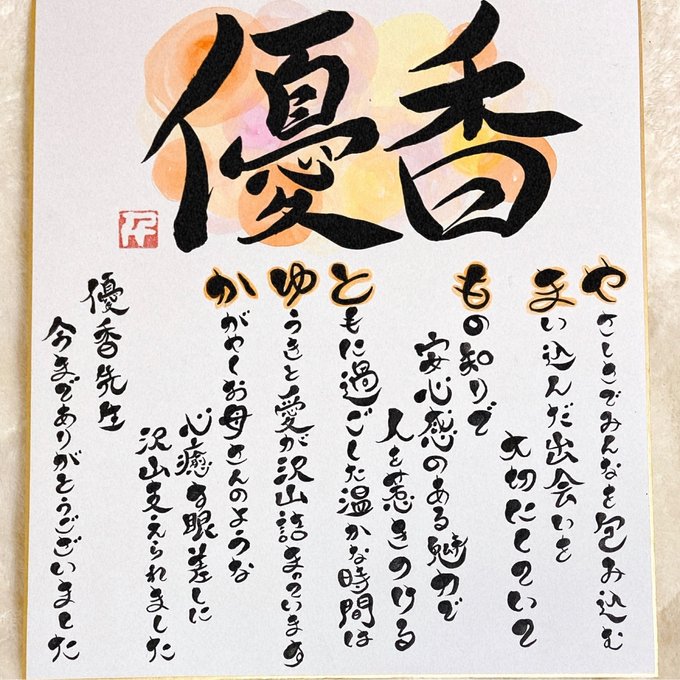 優香
やさしさでみんなを包み込む
まい込んだ出会いを
大切にしていて
もの知りで
安心感のある魅力で
人を惹きつける
ともに過ごした温かな時間は
ゆうきと愛が沢山詰まっています
かがやくお母さんのような
心癒す眼差しに
沢山支えられました
優香先生
今までありがとうございました